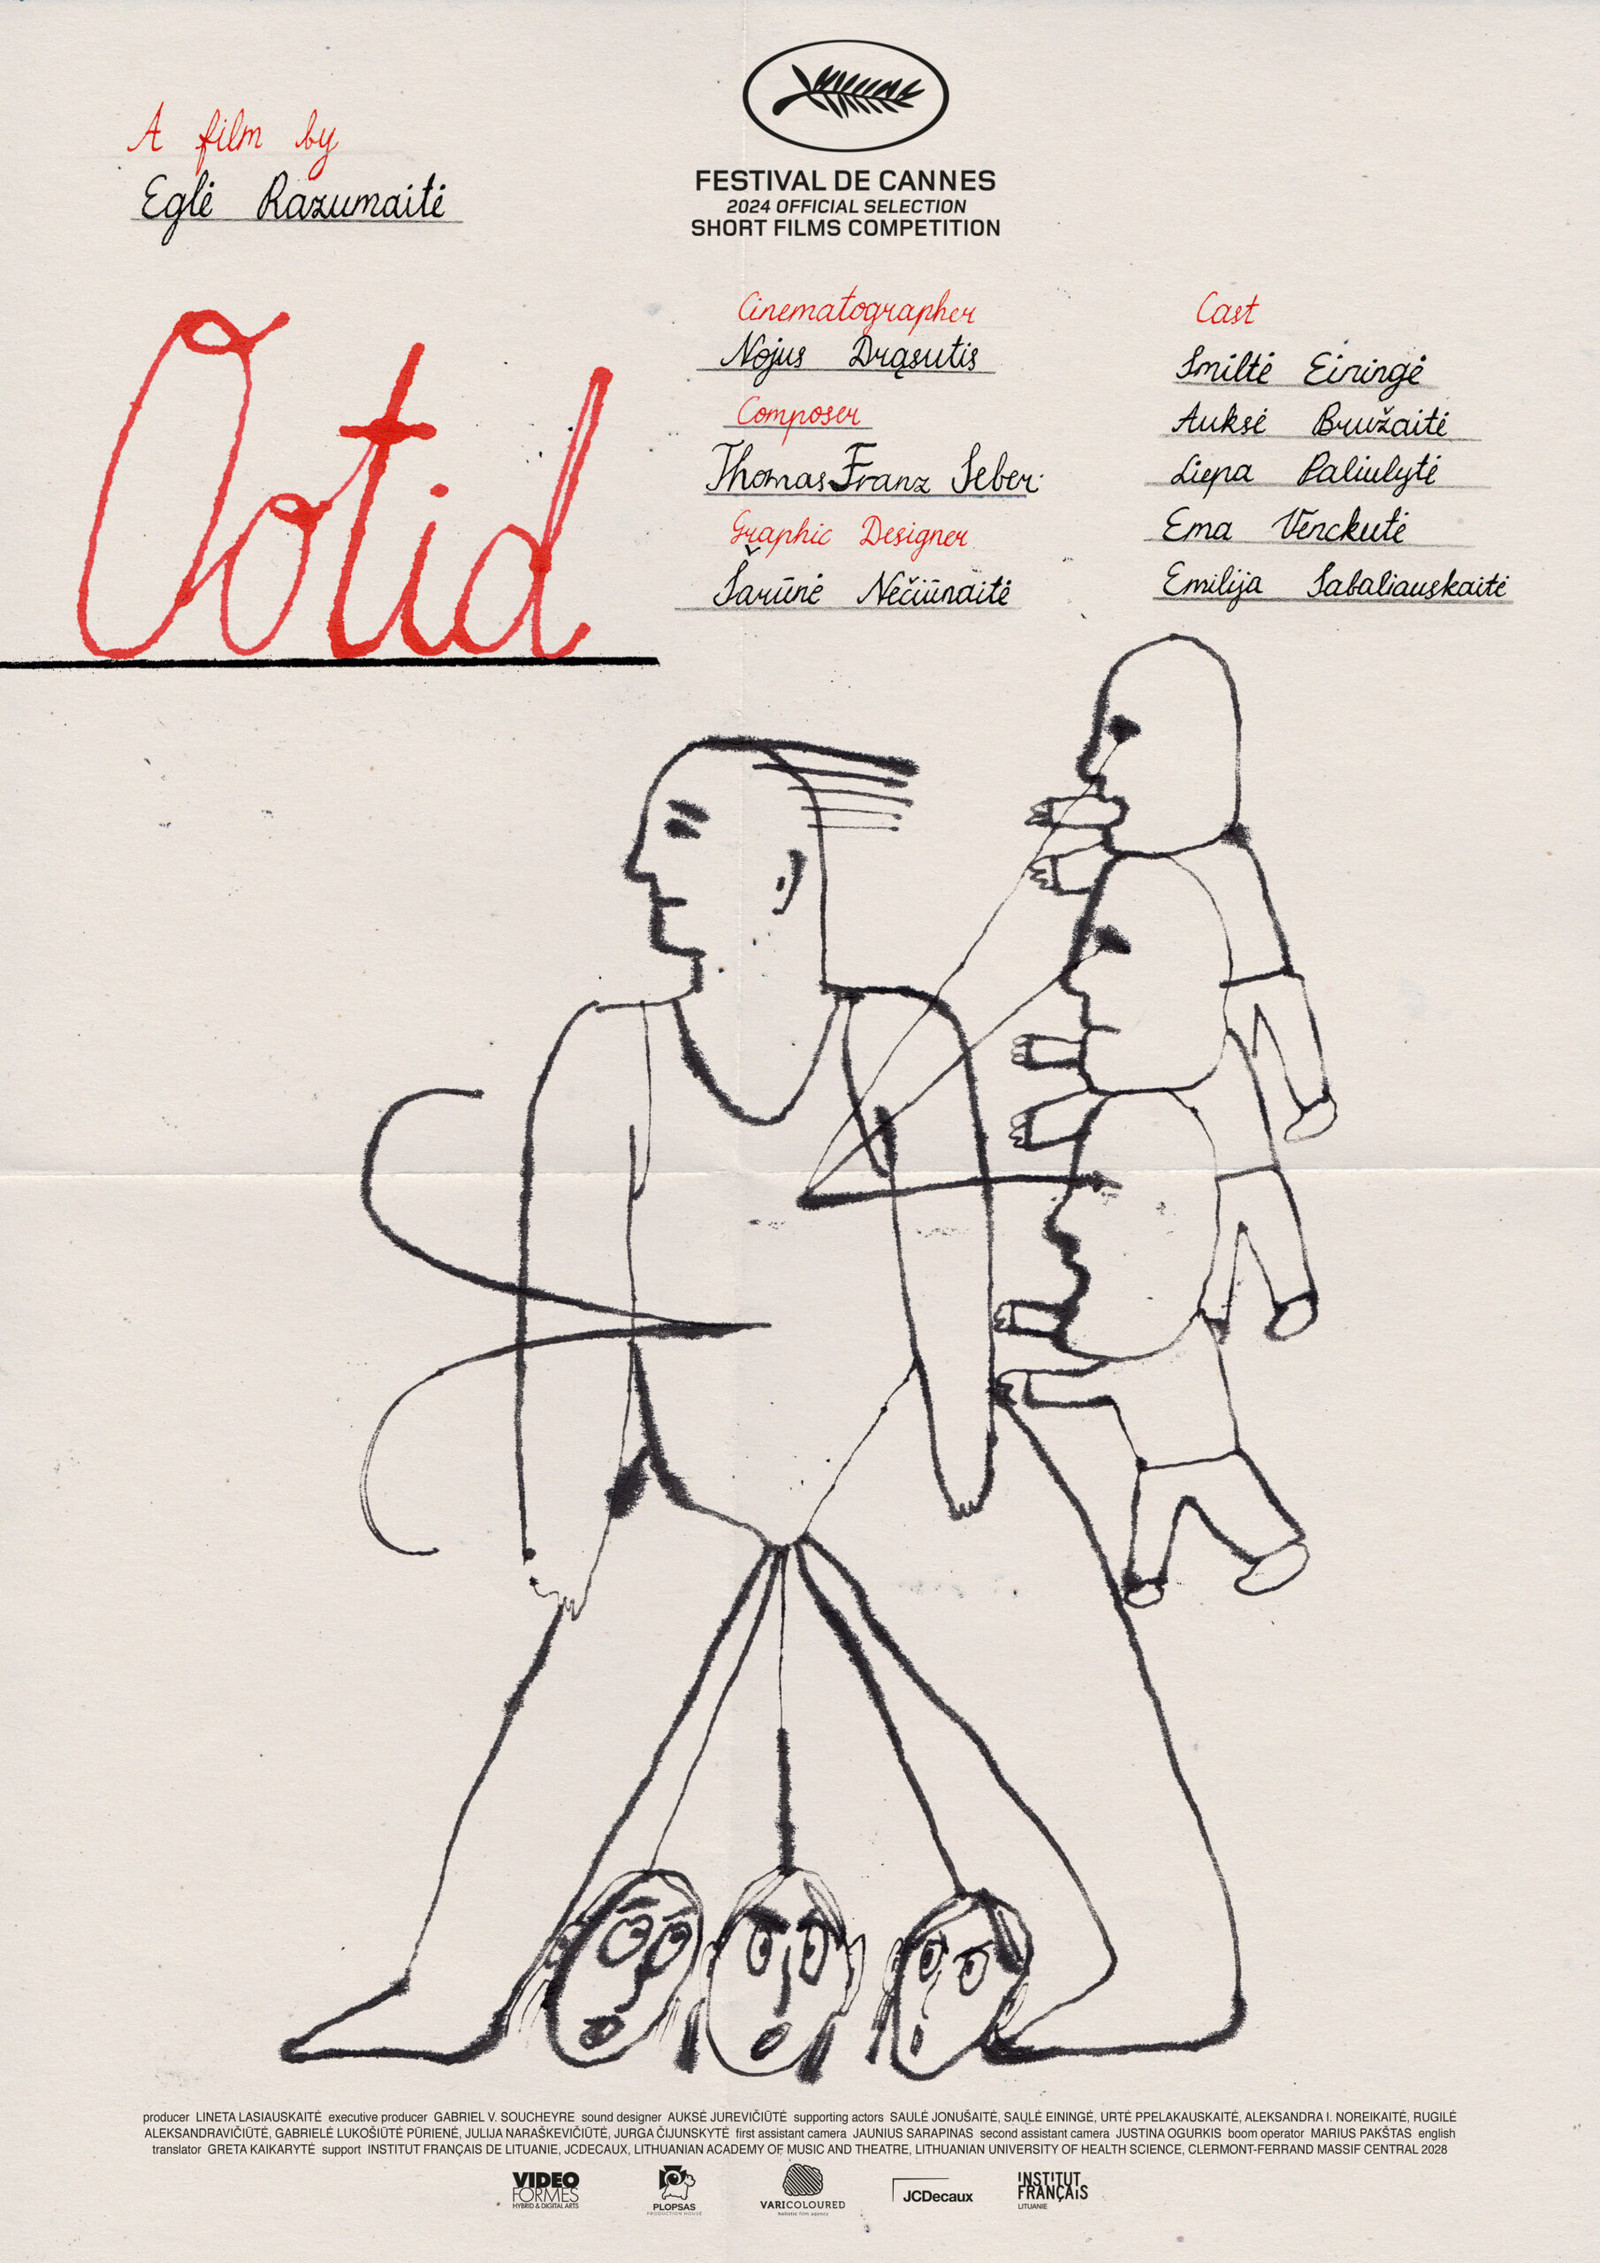 A film by
Eglė Razumaitė
FESTIVAL DE CANNES
2024 OFFICIAL SELECTION
SHORT FILMS COMPETITION
Ootid
Cinematographer
Nojus Drąsutis
Composer
Thomas Franz Seber
Graphic Designer
Šarūnė Nečiūnaitė
Cast
Smiltė Einingė
Auksė Bružaitė
Liepa Paliulytė
Ema Venckutė
Emilija Sabaliauskaitė
producer LINETA LASIAUSKAITĖ executive producer GABRIEL V. SOUCHEYRE sound designer AUKSĖ JUREVIČIŪTĖ supporting actors SAULĖ JONUŠAITĖ, SAULĖ EININGĖ, URTĖ PPELAKAUSKAITĖ, ALEKSANDRA I. NOREIKAITĖ, RUGILĖ
ALEKSANDRAVIČIŪTĖ, GABRIELĖ LUKOŠIŪTĖ PŪRIENĖ, JULIJA NARAŠKEVIČIŪTĖ, JURGA ČIJUNSKYTĖ first assistant camera JAUNIUS SARAPINAS second assistant camera JUSTINA OGURKIS boom operator MARIUS PAKŠTAS english
translator GRETA KAIKARYTĖ support INSTITUT FRANÇAIS DE LITUANIE, JCDECAUX, LITHUANIAN ACADEMY OF MUSIC AND THEATRE, LITHUANIAN UNIVERSITY OF HEALTH SCIENCE, CLERMONT-FERRAND MASSIF CENTRAL 2028
VIDEO
FORMES
HYBRID & DIGITAL ARTS
PLOPSAS
PRODUCTION HOUSE
VARICOLOURED
holistic film agency
JCDecaux
INSTITUT
FRANÇAIS
LITUANIE